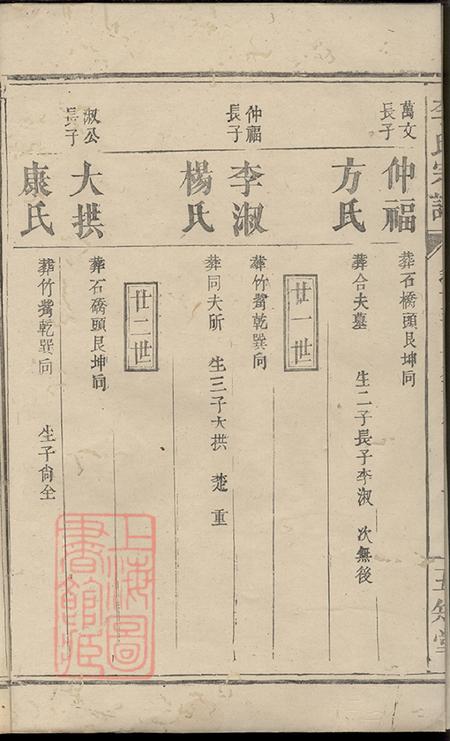 李氏宗譜
萬文長子
仲福
葬石橋頭艮坤向
方氏
葬合夫墓 生二子長子李淑 次無後
廿一世
仲福長子
李淑
葬竹嘴乾巽向
楊氏
葬同夫所 生三子大拱 楚 重
廿二世
淑公長子
大拱
葬石礄頭艮坤向
康氏
葬竹嘴乾巽向 生子尙全
上海圖書館藏